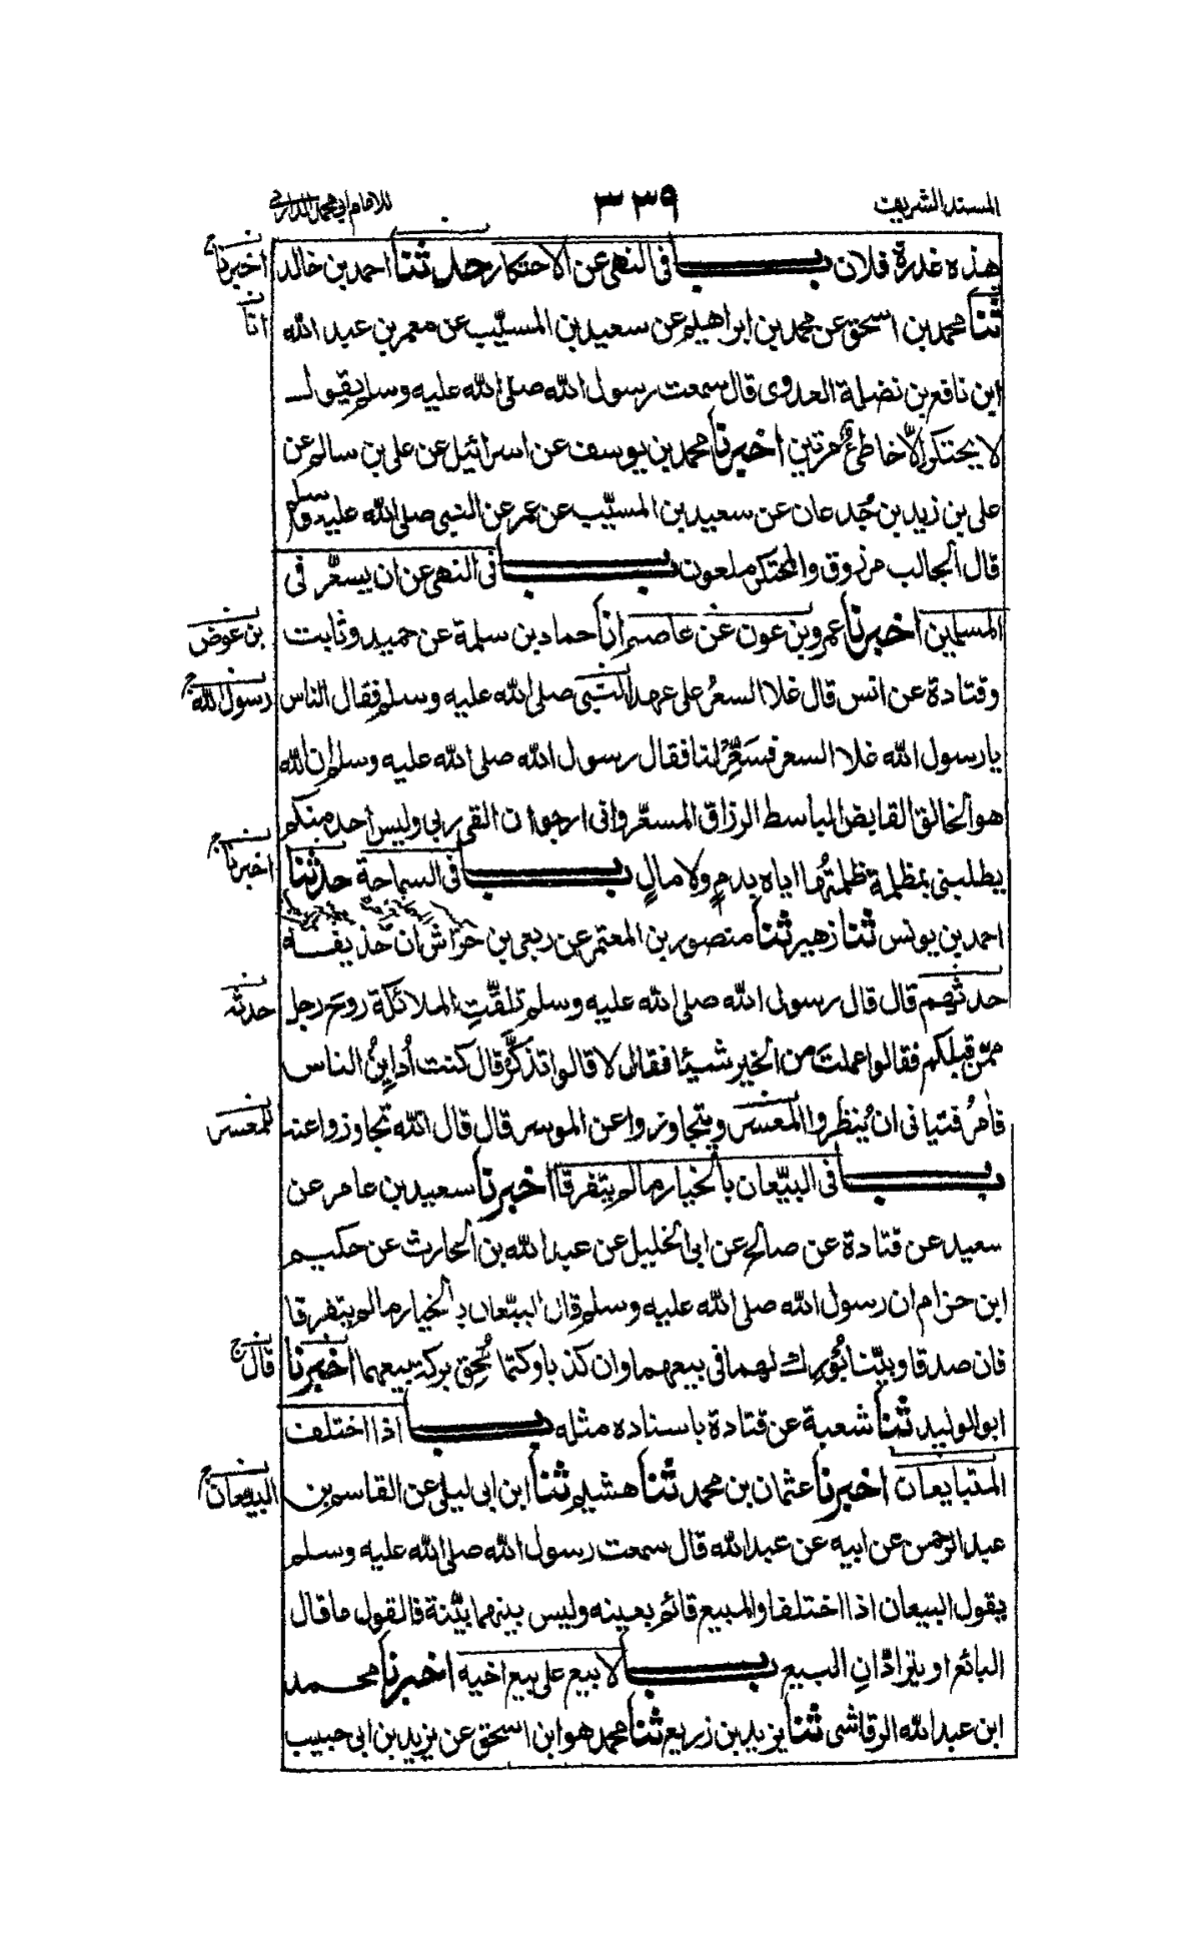 المسند الشريف ٣٣٩ للامام ابي محمد الدارمي
هذه غدرة فلان باب فى النهى عن الاحتكار حدثنا احمد بن خالد
اخبرنا
ثنا محمد بن اسحق عن محمد بن ابراهيم عن سعيد بن المسيّب عن معمر بن عبد الله
انا
ابن نافع بن نضلة العدوى قال سمعت رسول الله صلى الله عليه وسلم يقول
لا يحتكر الّا خاطئ مرتين اخبرنا محمد بن يوسف عن اسرائيل عن على بن سالم عن
على بن زيد بن جُدعان عن سعيد بن المسيّب عن عمر عن النبى صلى الله عليه وسلم
قال الجالب مرزوق والمحتكر ملعون باب فى النهى عن ان يسعّر فى
المسلمين اخبرنا عمرو بن عون عن عاصم انا حماد بن سلمة عن حميد وثابت
بن عوض
وقتادة عن انس قال غلا السعرُ على عهد النبى صلى الله عليه وسلم فقال الناس
رسول الله
يا رسول الله غلا السعر فسَعِّرْ لنا فقال رسول الله صلى الله عليه وسلم ان الله
هو الخالق القابض الباسط الرزاق المسعّر وانى ارجو ان القى ربى وليس احد منكم
يطلبنى بمظلمة ظلمتُها اياه بدمٍ ولا مالٍ باب فى السماحة حدثنا
اخبرنا
احمد بن يونس ثنا زهير ثنا منصور بن المعتمر عن ربعى بن حراش ان حذيفة
حدثهم قال قال رسول الله صلى الله عليه وسلم تلقّتِ الملائكة روحَ رجل
حدثه
ممّن قبلكم فقالوا عملتَ من الخير شيئا فقال لا قالوا تذكّرْ قال كنت اُداينُ الناس
فاٰمرُ فتيانى ان يُنظروا المعسر ويتجاوزوا عن الموسر قال قال الله تجاوزوا عنه
للمعسر
باب فى البيّعان بالخيار ما لم يتفرقا اخبرنا سعيد بن عامر عن
سعيد عن قتادة عن صالح عن ابى الخليل عن عبد الله بن الحارث عن حكيم
ابن حزام ان رسول الله صلى الله عليه وسلم قال البيّعان بالخيار ما لم يتفرقا
فان صدقا وبيّنا بُورِك لهما فى بيعهما وان كذبا وكتما مُحِق بركة بيعهما اخبرنا
قال
ابو الوليد ثنا شعبة عن قتادة باسناده مثله باب اذا اختلف
المتبايعان اخبرنا عثمان بن محمد ثنا هشيم ثنا ابن ابى ليلى عن القاسم بن
البيعان
عبد الرحمن عن ابيه عن عبد الله قال سمعت رسول الله صلى الله عليه وسلم
يقول البيعان اذا اختلفا والمبيع قائم بعينه وليس بينهما بيّنة فالقول ما قال
البائع او يترادّانِ البيع باب لا يبيع على بيع اخيه اخبرنا محمد
ابن عبد الله الرقاشى ثنا يزيد بن زريع ثنا محمد هو ابن اسحق عن يزيد بن ابى حبيب